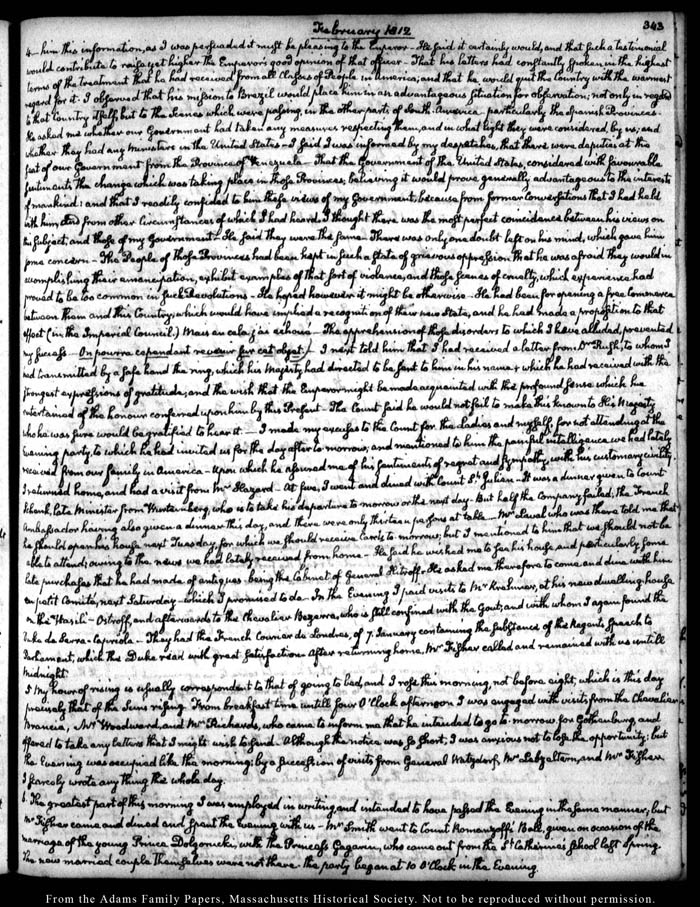 February 1812
343
4— him this information, as I was persuaded it must be pleasing to the Emperor— He said it certainly would, and that such a testimonial
would contribute to raise yet higher the Emperor's good opinion of that officer— That his letters had constantly spoken in the highest
terms of the treatment that he had received from all Classes of People in America, and that he would quit the Country with the warmest
regard for it. I observed that his mission to Brazil would place him in an advantageous situation for observation, not only in regard
to that Country itself, but to the Scenes which were passing, in the other parts of South-America— particularly the Spanish Provinces.
He asked me whether our Government had taken any measures respecting them, and in what light they were considered by us; and
whether they had any Ministers in the United States— I said I was informed by my despatches, that there were deputies at the
seat of our Government from the Province of Venezuela— That the Government of the United States, considered with favourable
sentiments, the change which was taking place in those Provinces, believing it would prove generally advantageous to the interests
of mankind: and that I readily confided to him these views of my Government, because from former Conversations that I had held
with him, and from other Circumstances of which I had heard I thought there was the most perfect coincidence between his views on
the subject, and those of my Government— He said they were the same— There was only one doubt left on his mind, which gave him
some concern— The People of those Provinces had been kept in such a State of grievous oppression that he was afraid they would in
accomplishing their emancipation, exhibit examples of that sort of violence, and those scenes of cruelty, which experience had
proved to be too common in such Revolutions— He hoped however it might be otherwise— He had been for opening a free Commerce
between them and this Country, which would have implied a recognition of their new State, and he had made a proposition to that
effect (in the Imperial Council.) Mais en cela j'ai échoué— The apprehension of those disorders to which I have alluded, prevented
my success— On pourra cependant revenir sur cet objet./ I next told him that I had received a letter from Dr Rush, to whom I
had transmitted by a safe hand the ring, which his Majesty had directed to be sent to him in his name & which he had received with the
strongest expressions of gratitude; and the wish that the Emperor might be made acquainted with the profound sense which he
entertained of the honour conferred upon him by this Present— The Count said he would not fail to make this known to His Majesty
who he was sure would be gratified to hear it— I made my excuses to the Count for the Ladies and myself, for not attending at the
Evening party, to which he had invited us for the day after to-morrow, and mentioned to him the painful intelligence we had lately
received from our family in America— upon which he assured me of his sentiments of regret and sympathy, with his customary civility.
I returned home, and had a visit from Mr Hazard— At five, I went and dined with Count St. Julien— It was a dinner given to Count
late Minister from Wurtemberg, who is to take his departure to morrow or the next day— But half the Company failed; the French
Ambassador having also given a dinner this day, and there were only thirteen persons at table— Mr Laval who was there told me that
he should open his house next Tuesday, for which we should receive Cards to-morrow; but I mentioned to him that we should not be
able to attend; owing to the news we had lately received from home— He said he wished me to see his house and particularly some
late purchases that he had made of antiques— being the Cabinet of General Hitroff— He asked me therefore to come and dine with him
en petit Comité, next Saturday— which I promised to do— In the Evening I paid visits to Mr Krehmer, at his new dwelling-house
on the Wasili-Ostroff, and afterwards to the Chevalier Bezerra, who is still confined with the Gout; and with whom I again found the
Duke de Serra-Capriola— They had the French Courier de Londres, of 7. January containing the Substance of the Regent's Speech to
Parliament, which the Duke read with great satisfaction. After returning home, Mr Fisher called and remained with us untill
Midnight.
5. My hour of rising is usually correspondent to that of going to bed, and I rose this morning, not before eight, which is this day
precisely that of the Sun's rising. From breakfast time untill four O'Clock afternoon I was engaged with visits from the Chevalier
Brancia, Mr Woodward, and Mr Richards, who came to inform me that he intended to go to-morrow for Gothenburg, and
offered to take any letters that I might wish to send. Although the notice was so short, I was anxious not to lose the opportunity; but
the Evening was occupied like the morning; by a succession of visits from General Watzdorf, Mr Labzaltern, and Mr Fisher
I scarcely wrote any thing the whole day.
6. The greatest part of this morning I was employed in writing and intended to have passed the Evening in the same manner; but
Mr Fisher came and dined and spent the evening with us— Mr Smith went to Count Romanzoff's Ball, given on occasion of the
marriage of the young Prince Dolgorucki, with the Princess Gagarin, who came out from the St Catherine's School last Spring.
The new married couple themselves were not there. the party began at 10 O'Clock in the Evening.
From the Adams Family Papers, Massachusetts Historical Society. Not to be reproduced without permission.